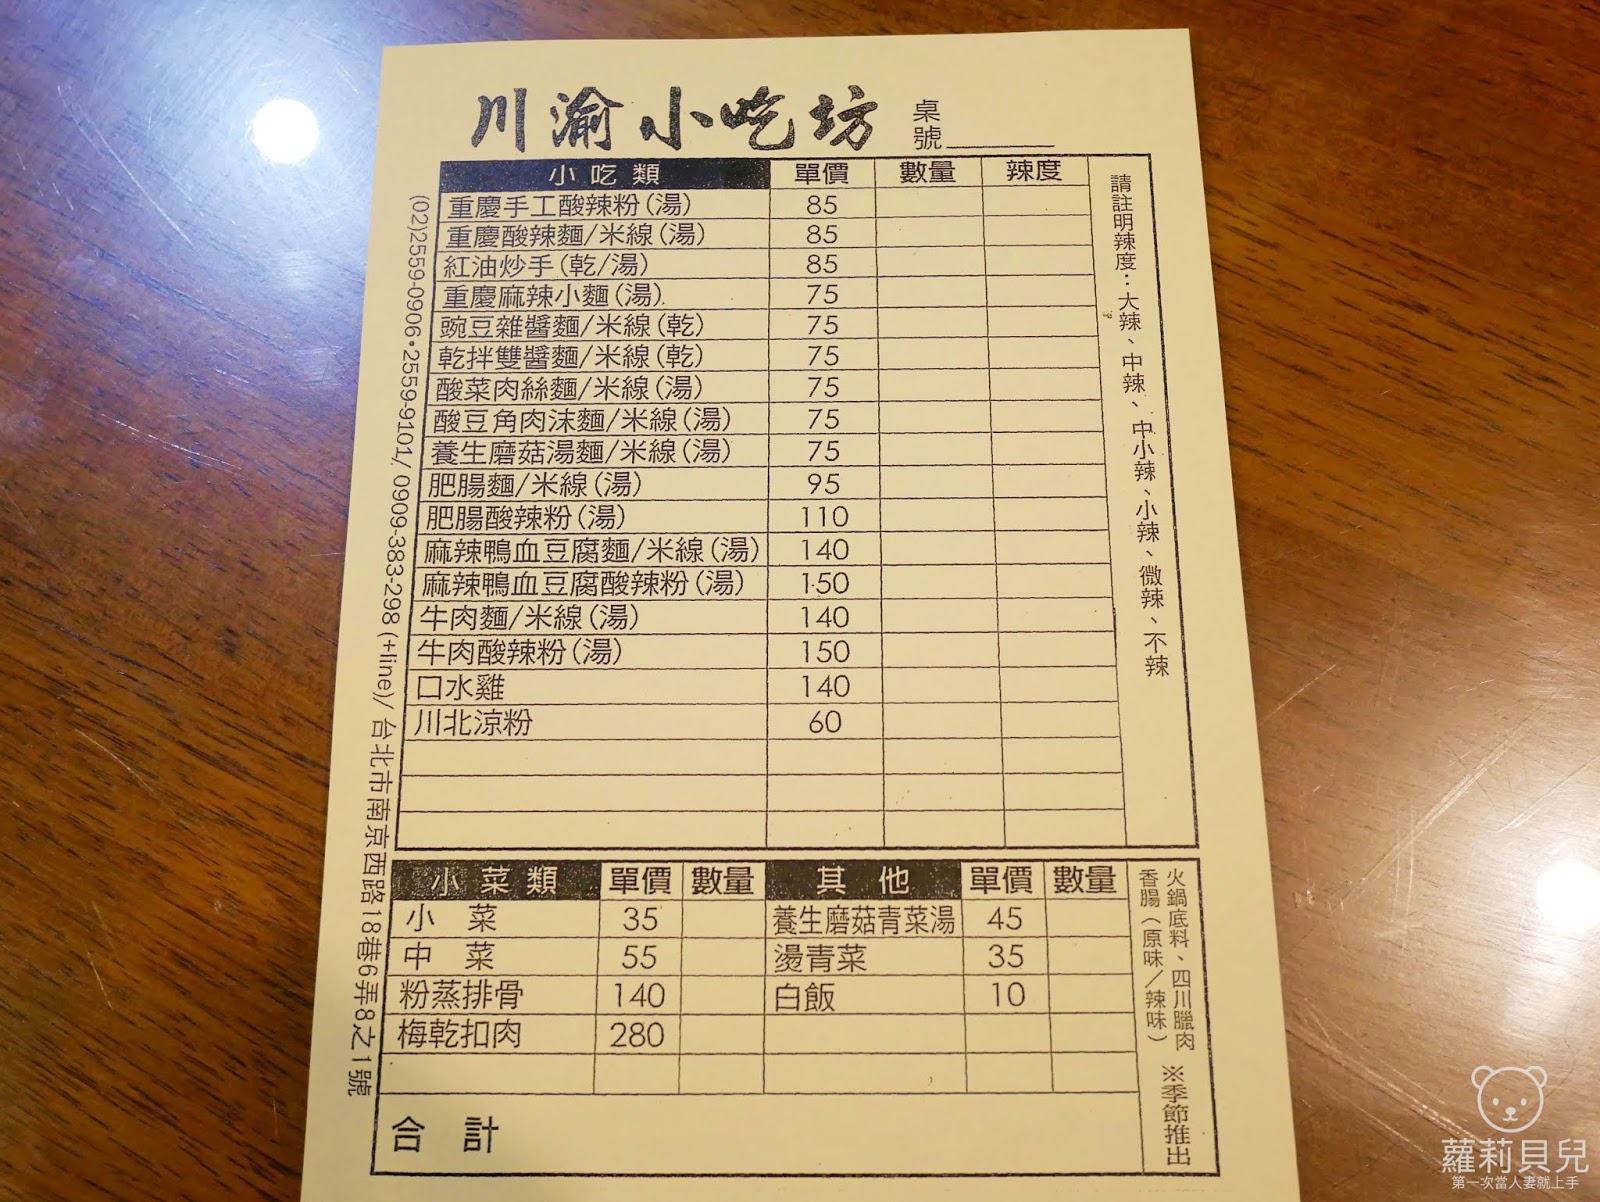 川渝小吃坊 桌號
小吃類 單價 數量 辣度
重慶手工酸辣粉(湯) 85
重慶酸辣麵/米線(湯) 85
紅油炒手(乾/湯) 85
重慶麻辣小麵(湯) 75
豌豆雜醬麵/米線(乾) 75
乾拌雙醬麵/米線(乾) 75
酸菜肉絲麵/米線(湯) 75
酸豆角肉沫麵/米線(湯) 75
養生磨菇湯麵/米線(湯) 75
肥腸麵/米線(湯) 95
肥腸酸辣粉(湯) 110
麻辣鴨血豆腐麵/米線(湯) 140
麻辣鴨血豆腐酸辣粉(湯) 150
牛肉麵/米線(湯) 140
牛肉酸辣粉(湯) 150
口水雞 140
川北涼粉 60
請註明辣度：大辣、中辣、中小辣、小辣、微辣、不辣
(02)2559-0906•2559-9101/0909-383-298(+line)/ 台北市南京西路18巷6弄8之1號
小菜類 單價 數量 其他 單價 數量
小菜 35 養生磨菇青菜湯 45
中菜 55 燙青菜 35
粉蒸排骨 140 白飯 10
梅乾扣肉 280
合計
火鍋底料、四川臘肉
香腸(原味/辣味)
※季節推出
蘿莉貝兒
第一次當人妻就上手